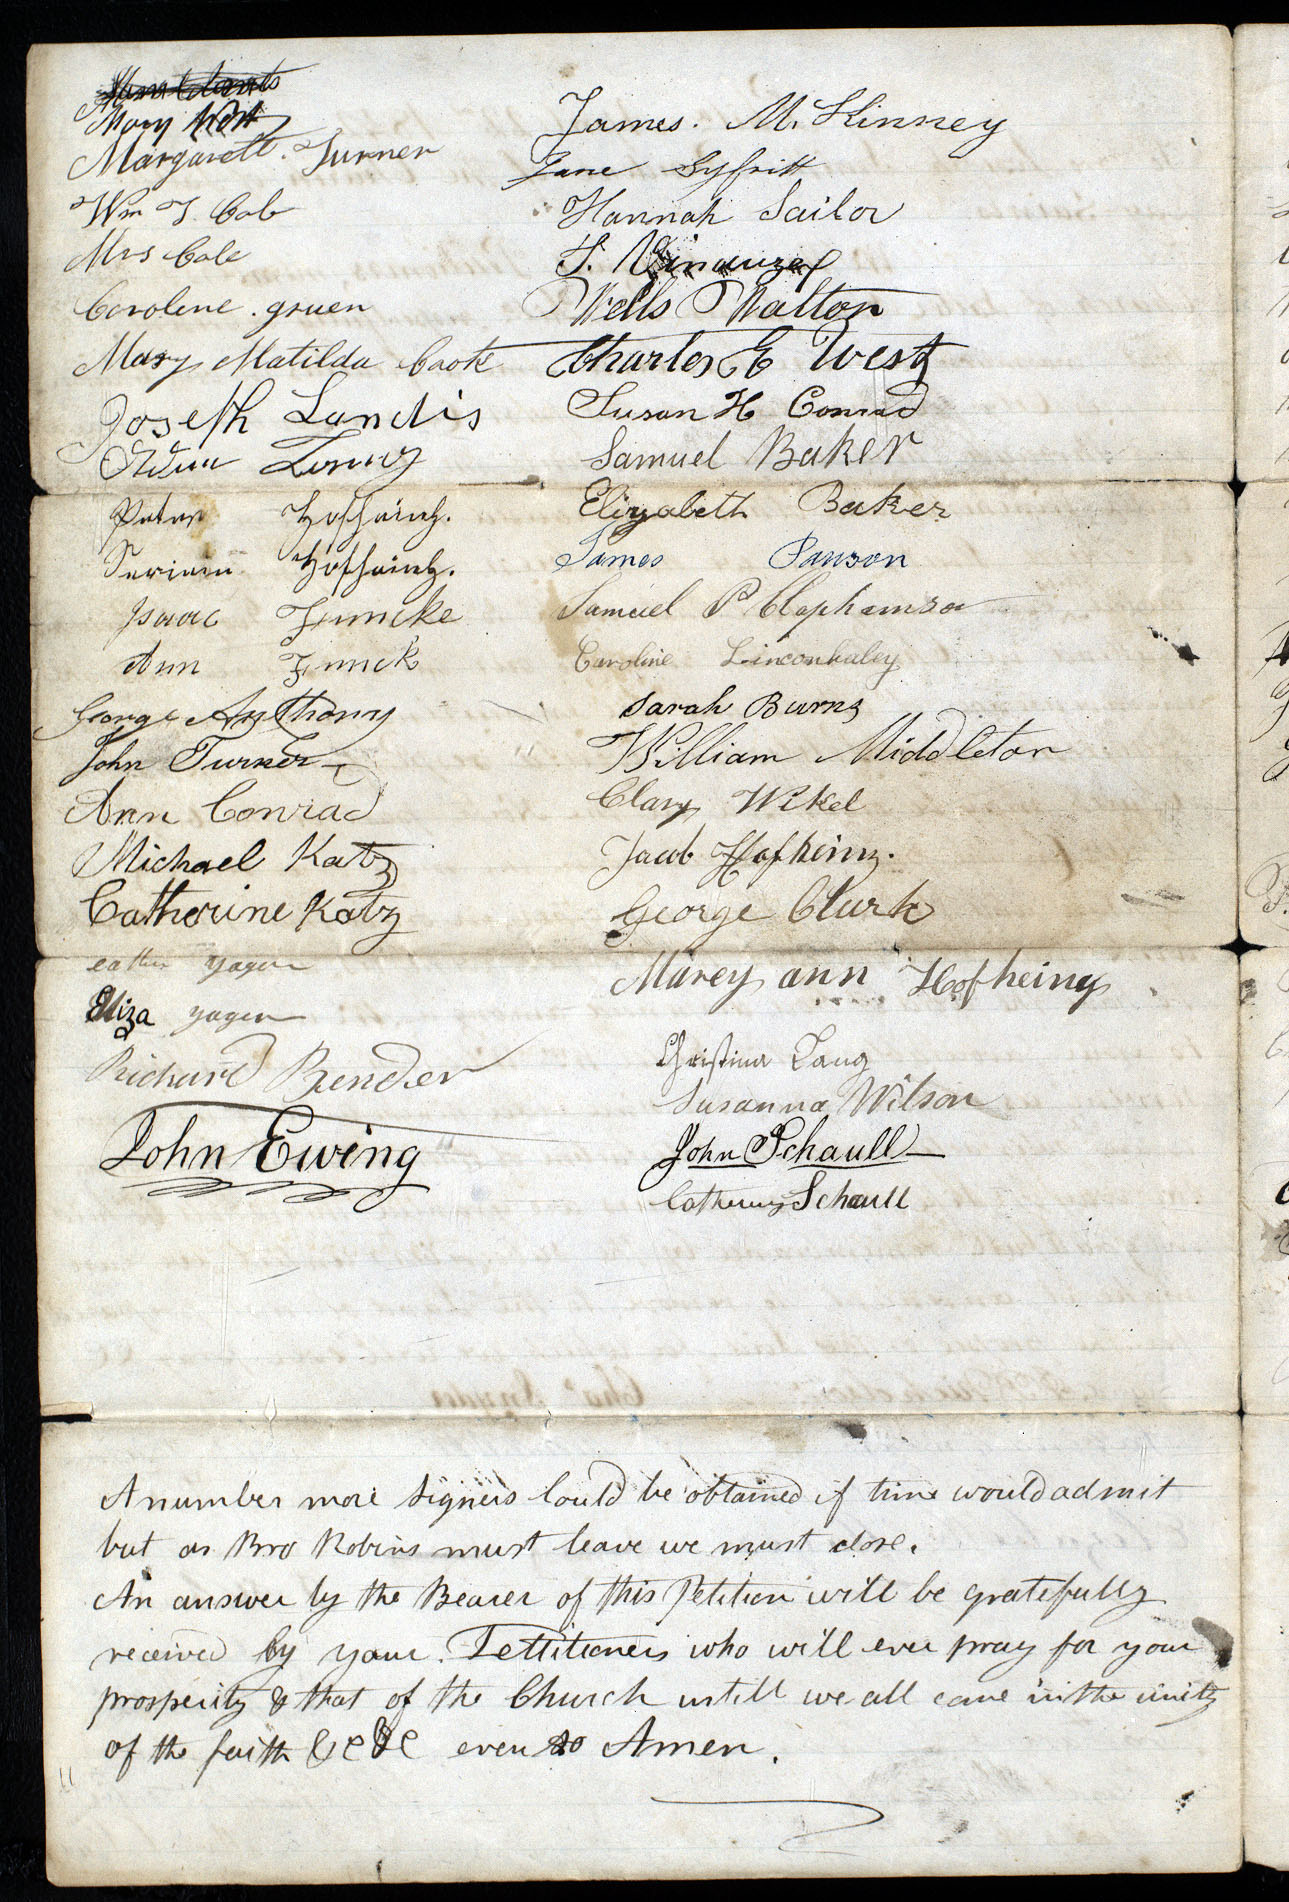 Mary West
Margarett. Turner
Wm T. Cole
Mrs Cole
Caroline. gruen
Mary Matilda Cook
Joseph Landis
Peter Hofheinz.
Hofheinz.
Isaac Funcke
Ann Funck
George Anthony
John Turner
Ann Conrad
Michael Katz
Catharine Katz
yager
Eliza yager
Richard Bender
John Ewing
James. McKinney
Jane Syfritt
Hannah Sailor
Wells Walton
Charles E West
Susan H Conrad
Samuel Baker
Elizabeth Baker
James Pawson
Samuel P Clephamson
Caroline
Sarah Burns
William Middleton
Clary Wikel
Jacob Hofheinz.
George Clark
Marey ann Hofheinz
Christina Lang
Susanna Wilson
John Schaull
Schaull
A number more signers Could be obtained if time would admit
but as Bro Robins must leave we must close.
An answer by the Bearer of this Petition will be gratefully
received by your. Pettitioners who will ever pray for your
prosperity & that of the Church untill we all come in the unity
of the faith &c &c even so Amen.